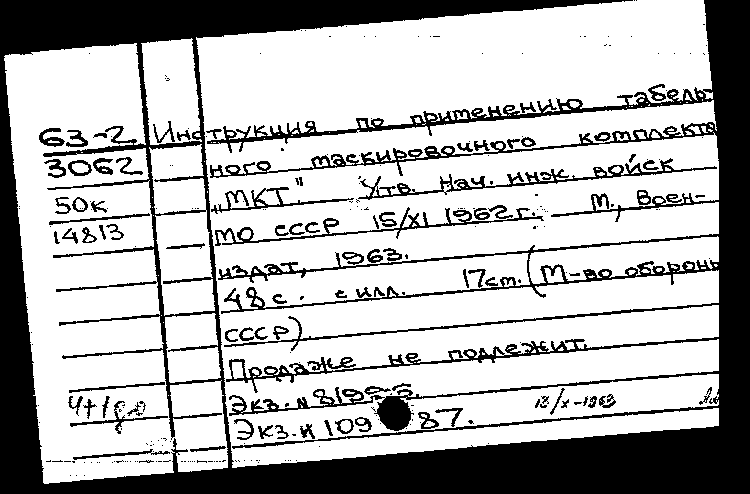 63-2 Инструкция по применению табель-
3062 ного маскировочного комплекта
50к „МКТ". Утв. Нач. инж. войск
14813 МО СССР 15/XI 1962 г. М., Воен-
издат, 1963.
48 с. с илл. 17 см. (М-во обороны
СССР).
Продаже не подлежит.
Экз. N
Экз. N 109 87. 18/X-1963